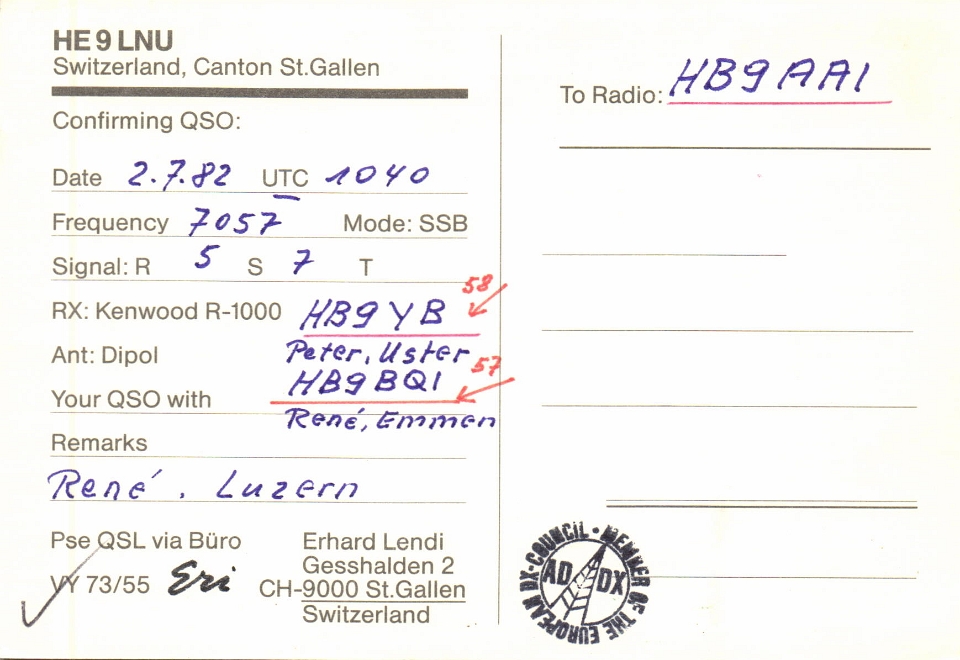 HE9LNU
Switzerland, Canton St.Gallen
Confirming QSO:
Date 2.7.82 UTC 1040
Frequency 7057 Mode: SSB
Signal: R 5 S 7 T
58
RX: Kenwood R-1000 HB9YB
Ant: Dipol Peter, Uster
57
HB9BQI
Your QSO with
René, Emmen
Remarks
René. Luzern
Pse QSL via Büro
VY 73/55 Eri
Erhard Lendi
Gesshalden 2
CH-9000 St.Gallen
Switzerland
To Radio: HB9AAI
AD DX
MEMBER OF THE EUROPEAN DX-COUNCIL